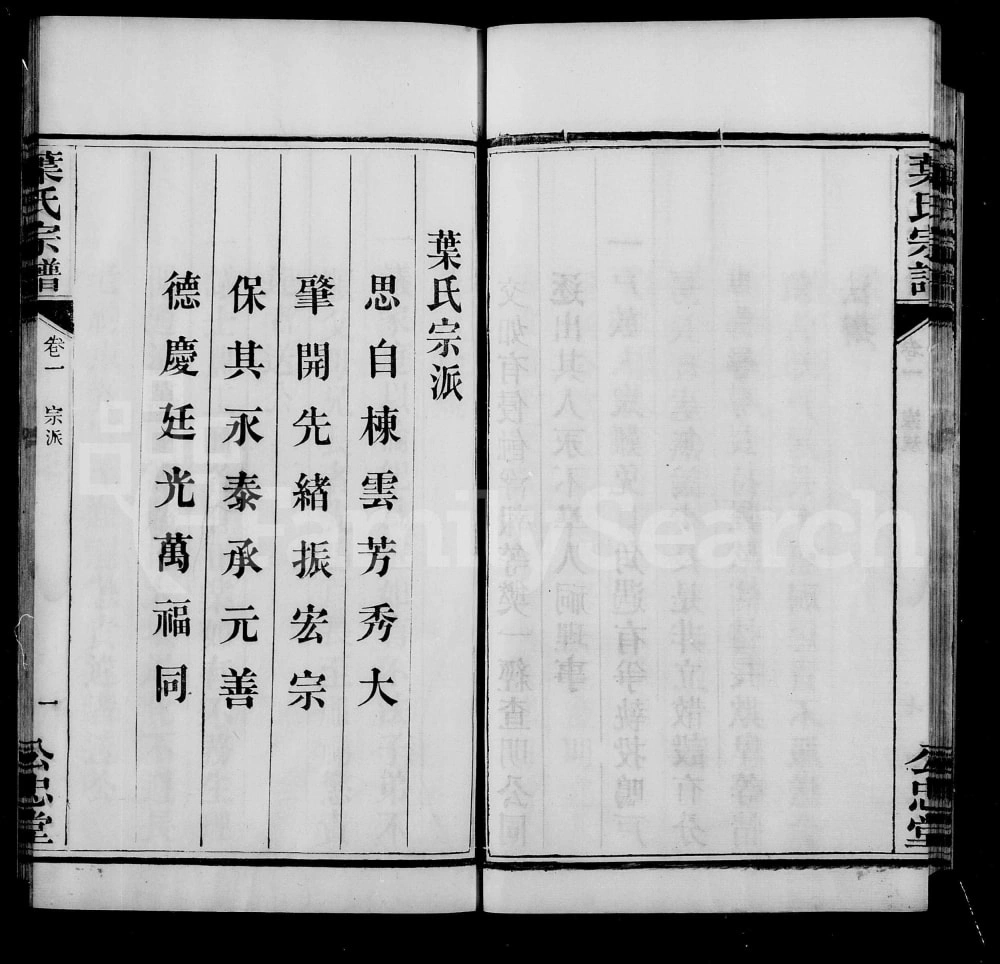 葉氏宗譜
公忠堂
葉氏宗派
思自棟雲芳秀大
肇開先緒振宏宗
保其永泰承元善
德慶廷光萬福同
葉氏宗譜
卷一
宗派
一
公忠堂
FamilySearch